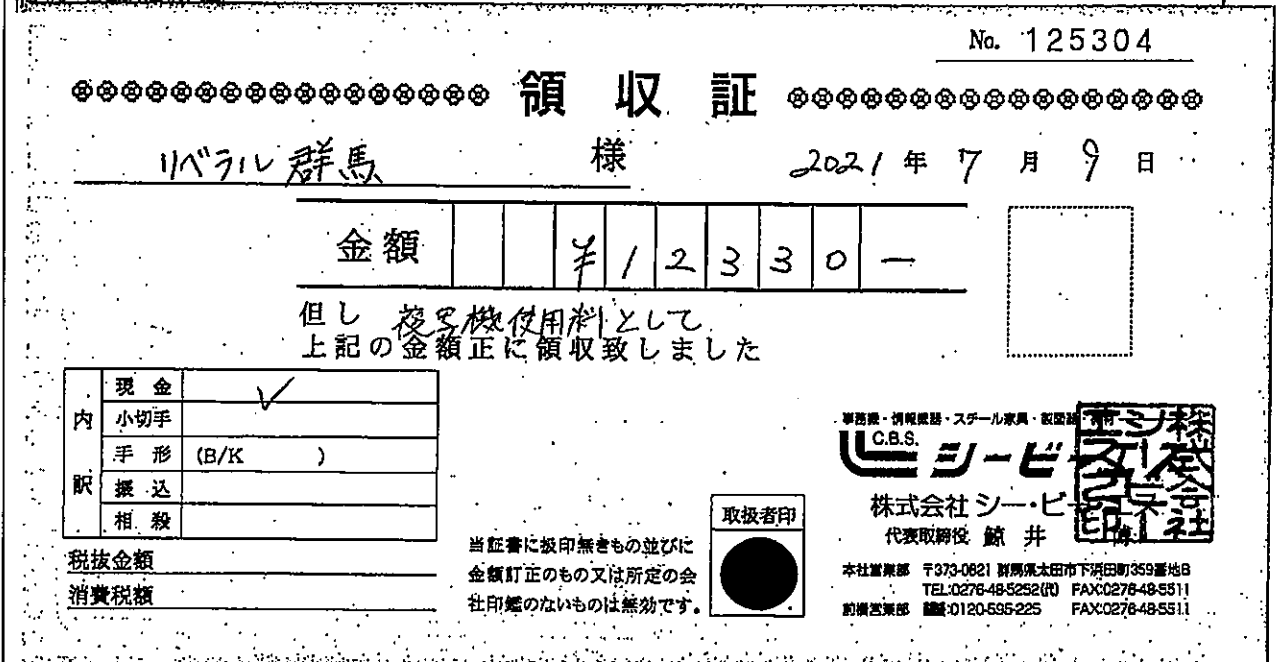 No. 125304
領収証
リベラル群馬 様
2021年7月9日
金額 ¥12330-
但し 複写機使用料として
上記の金額正に領収致しました
内訳
現金 ✓
小切手
手形 (B/K )
振込
相殺
税抜金額
消費税額
当証書に扱印無きもの並びに
金額訂正のもの又は所定の会
社印鑑のないものは無効です。
取扱者印
事務機・情報機器・スチール家具・製図器・
C.B.S. シービー
株式会社 シー・ビー・エス
代表取締役 鯨井
本社営業部 〒373-0821 群馬県太田市下浜田町359番地8
TEL:0276-48-5252(代) FAX:0276-48-5511
前橋営業部 :0120-595-225 FAX:0276-48-5511